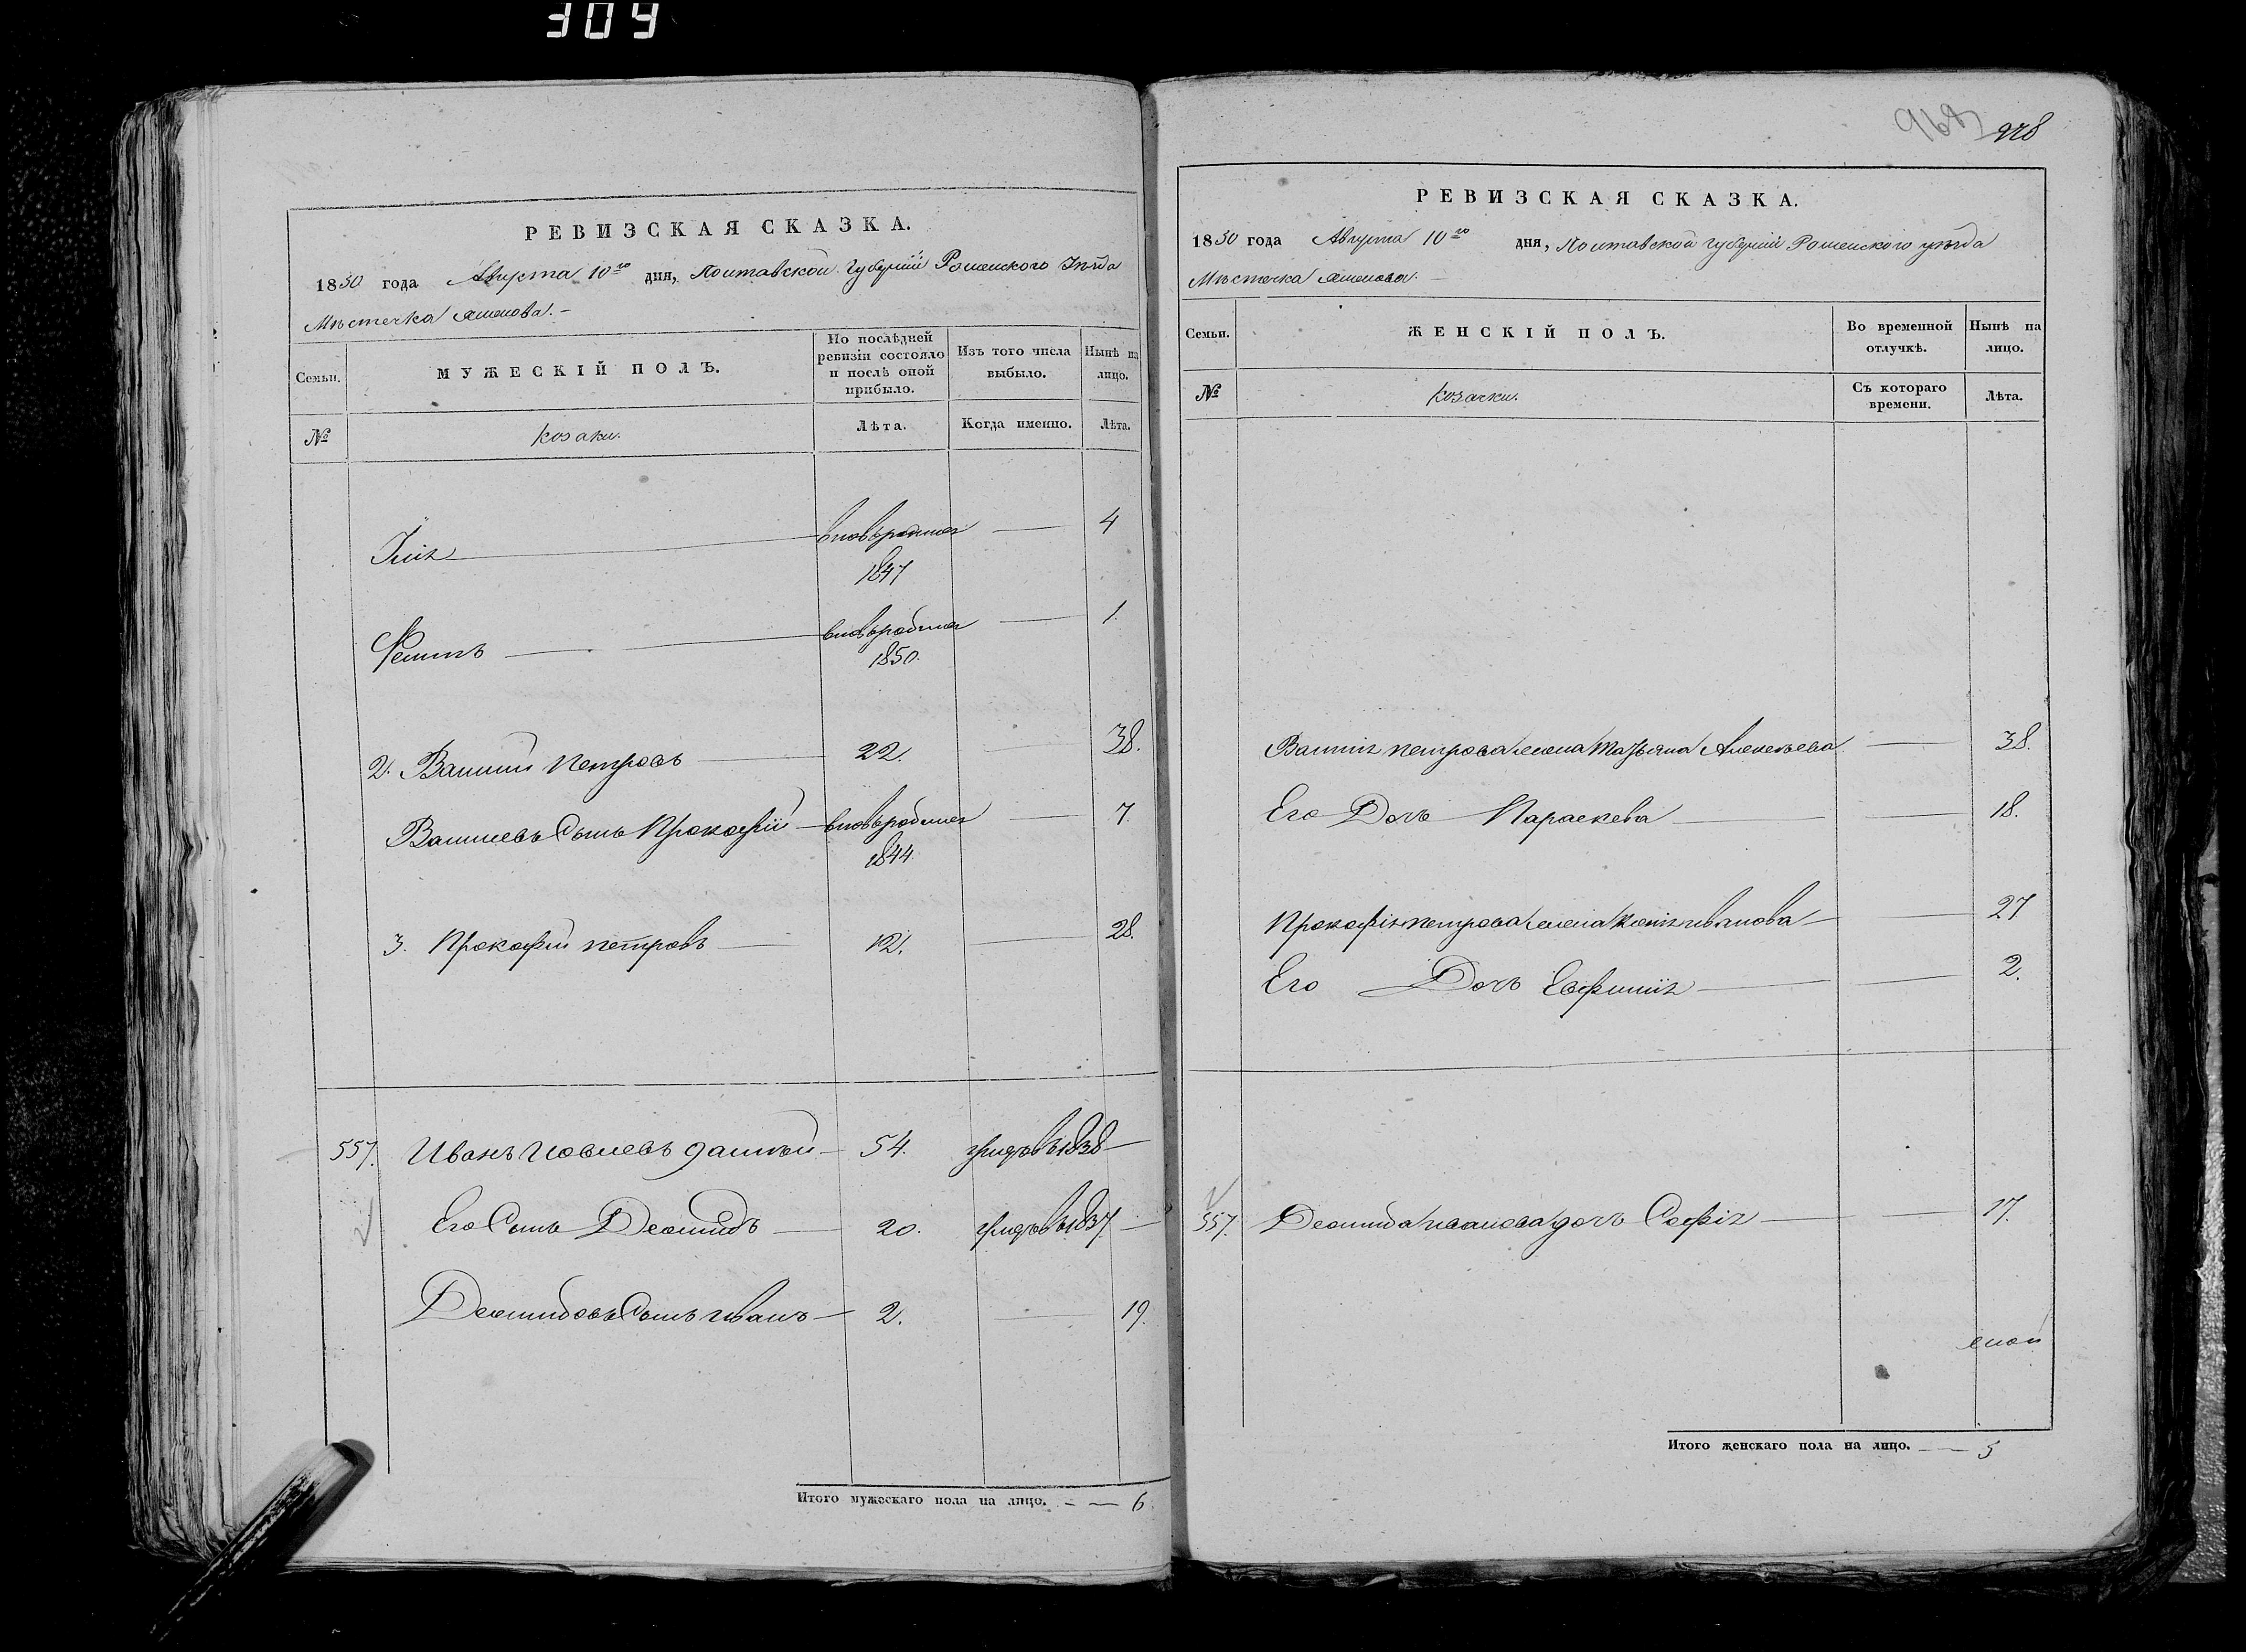 309
РЕВИЗСКАЯ СКАЗКА.
1850 года Августа 10го дня, Полтавской Губернии Роменского Уѣзда
Мѣстечка
МУЖЕСКІЙ ПОЛЪ.
Семьи.
По послѣдней ревизіи состояло и послѣ оной прибыло.
Изъ того числа выбыло.
Нынѣ на лицо.
№
козаки.
Лѣта.
Когда именно.
Лѣта.
Илія вновьрожден 4
1847
Филипъ вновьрожден 1.
1850.
2. Василий Петровъ 22. 38.
Василиевъ Сынъ Прокофій вновьрожден 7
1844.
3. Прокофий петровъ 12. 28.
557. Иванъ 54. 1838
Его Сынъ Деомидъ 20. 1837.
Деомидовъ Сынъ иванъ 2. 19.
Итого мужескаго пола на лицо. 6
928
РЕВИЗСКАЯ СКАЗКА.
1850 года Августа 10го дня, Полтавской губернии Роменского уѣзда
Мѣстечка
Семьи.
ЖЕНСКІЙ ПОЛЪ.
Во временной отлучкѣ.
Нынѣ на лицо.
№
козачки.
Съ котораго времени.
Лѣта.
Василия петрова жена Татьяна Алексѣева 38.
Его Дочь Параскева 18.
Прокофія петрова жена иванова 27
Его Дочь Евфимия 2.
557. Деомида иванова дочь Софія 17.
Итого женскаго пола на лицо. 5